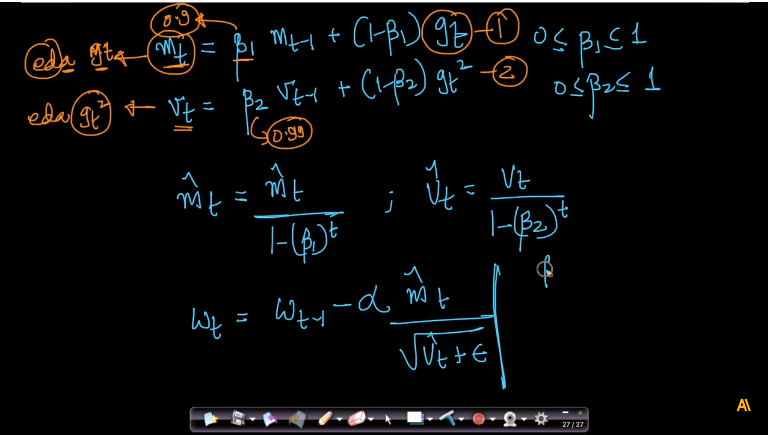 0.9
eda gt ← mt = β1 mt-1 + (1-β1) gt - 1 0 ≤ β1 ≤ 1
eda gt² ← vt = β2 vt-1 + (1-β2) gt² - 2 0 ≤ β2 ≤ 1
0.99
m̂t = m̂t / 1-(β1)^t ; v̂t = vt / 1-(β2)^t
β
wt = wt-1 - α m̂t / √v̂t + ε
27 / 27
A\